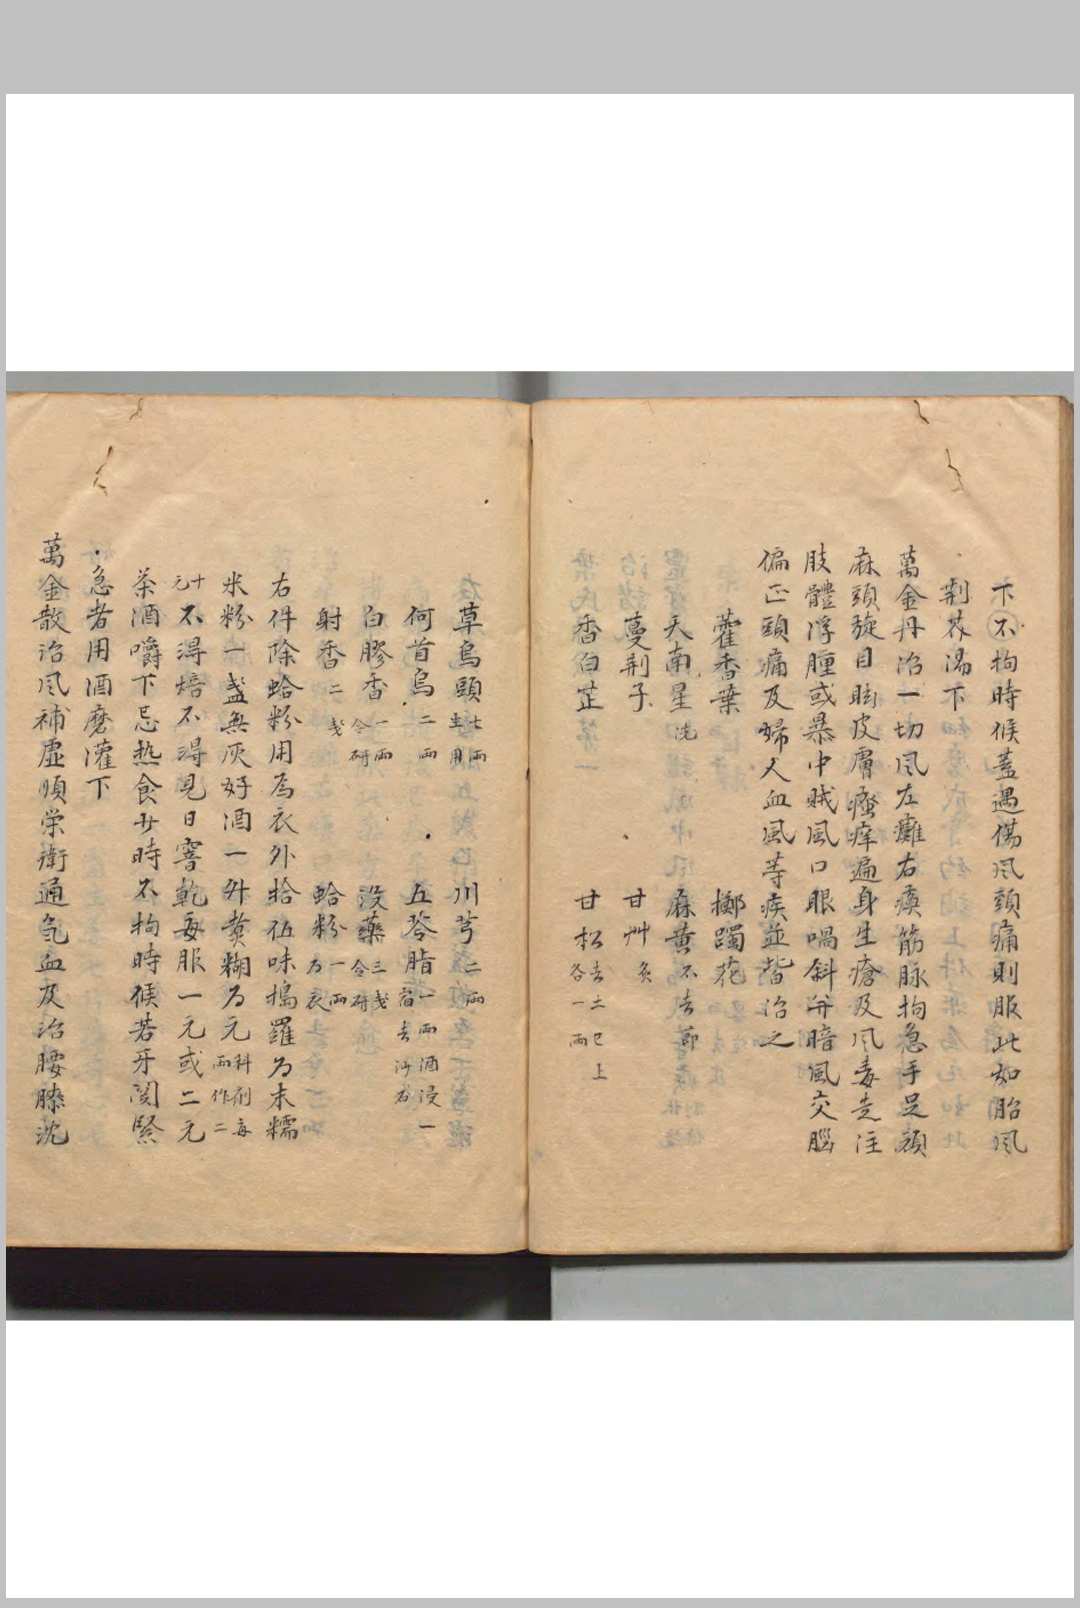 下不拘時候蓋遇傷风頭痛則服此如胎風
荆芥湯下
萬金丹治一切风左癱右瘓筋脉拘急手足頑
麻頭旋目眩皮膚瘙痒遍身生瘡及风毒走注
肢體浮腫或暴中賊風口眼喎斜并暗風交腦
偏正頭痛及婦人血風等疾並皆治之
藿香葉 擲躅花
天南星洗 麻黄不去節
蔓荆子 甘艸炙
香白芷 甘松去土已上各一兩
草烏頭七兩生用 川芎二兩
何首烏二兩 五苓脂一兩酒浸一宿去沙石
白膠香一兩令研 没藥三戔令研
射香二戔 蛤粉一兩为衣
右件除蛤粉用為衣外拾伍味搗羅为末糯
米粉一盞無灰好酒一升煑糊为元科剤每兩作二
十元不淂焙不淂見日窨乾每服一元或二元
茶酒嚼下忌热食廿時不拘時候若牙関緊
急者用酒磨灌下
萬金散治风補虚順栄衛通气血及治腰膝沈